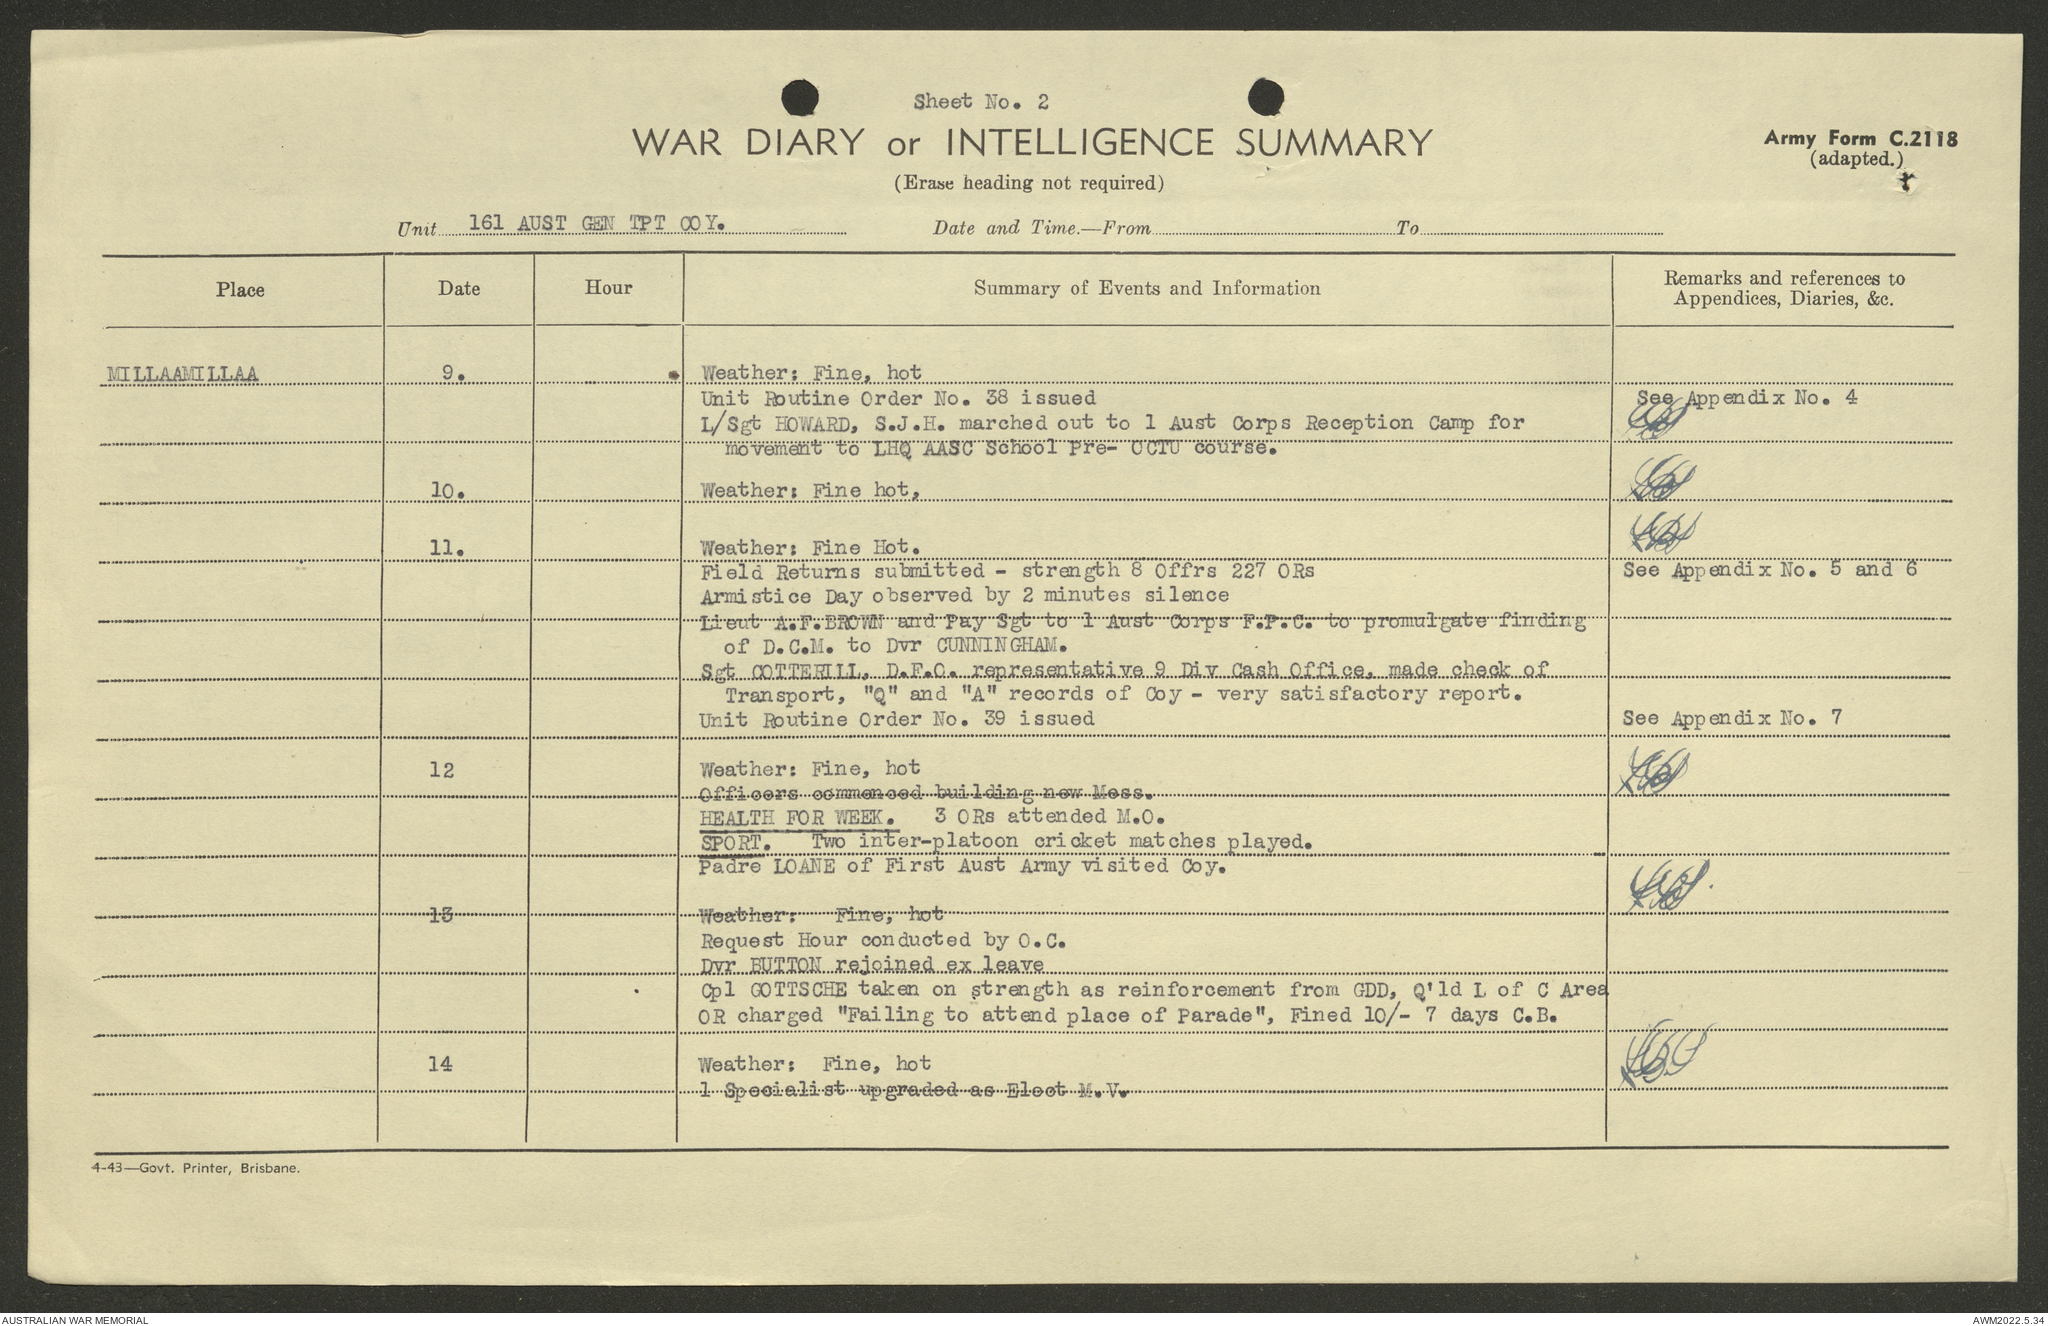 Sheet No. 2
WAR DIARY or INTELLIGENCE SUMMARY
Army Form C.2118
(adapted.)
(Erase heading not required)
Unit 161 AUST GEN TPT COY.
Date and Time.—From To
Place
Date
Hour
Summary of Events and Information
Remarks and references to
Appendices, Diaries, &c.
MILLAAMILLAA 9. Weather: Fine, hot
Unit Routine Order No. 38 issued See Appendix No. 4
L/Sgt HOWARD, S.J.H. marched out to 1 Aust Corps Reception Camp for
movement to LHQ AASC School Pre- OCTU course.
10. Weather: Fine hot,
11. Weather: Fine Hot.
Field Returns submitted - strength 8 Offrs 227 ORs See Appendix No. 5 and 6
Armistice Day observed by 2 minutes silence
Lieut A.F.BROWN and Pay Sgt to 1 Aust Corps F.P.C. to promulgate finding
of D.C.M. to Dvr CUNNINGHAM.
Sgt COTTERILL, D.F.O. representative 9 Div Cash Office, made check of
Transport, "Q" and "A" records of Coy - very satisfactory report.
Unit Routine Order No. 39 issued See Appendix No. 7
12 Weather: Fine, hot
Officers commenced building new Mess.
HEALTH FOR WEEK. 3 ORs attended M.O.
SPORT. Two inter-platoon cricket matches played.
Padre LOANE of First Aust Army visited Coy.
13 Weather: Fine, hot
Request Hour conducted by O.C.
Dvr BUTTON rejoined ex leave
Cpl GOTTSCHE taken on strength as reinforcement from GDD, Q'ld L of C Area
OR charged "Failing to attend place of Parade", Fined 10/- 7 days C.B.
14 Weather: Fine, hot
1 Specialist upgraded as Elect M.V.
4-43—Govt. Printer, Brisbane.
AUSTRALIAN WAR MEMORIAL
AWM2022.5.34